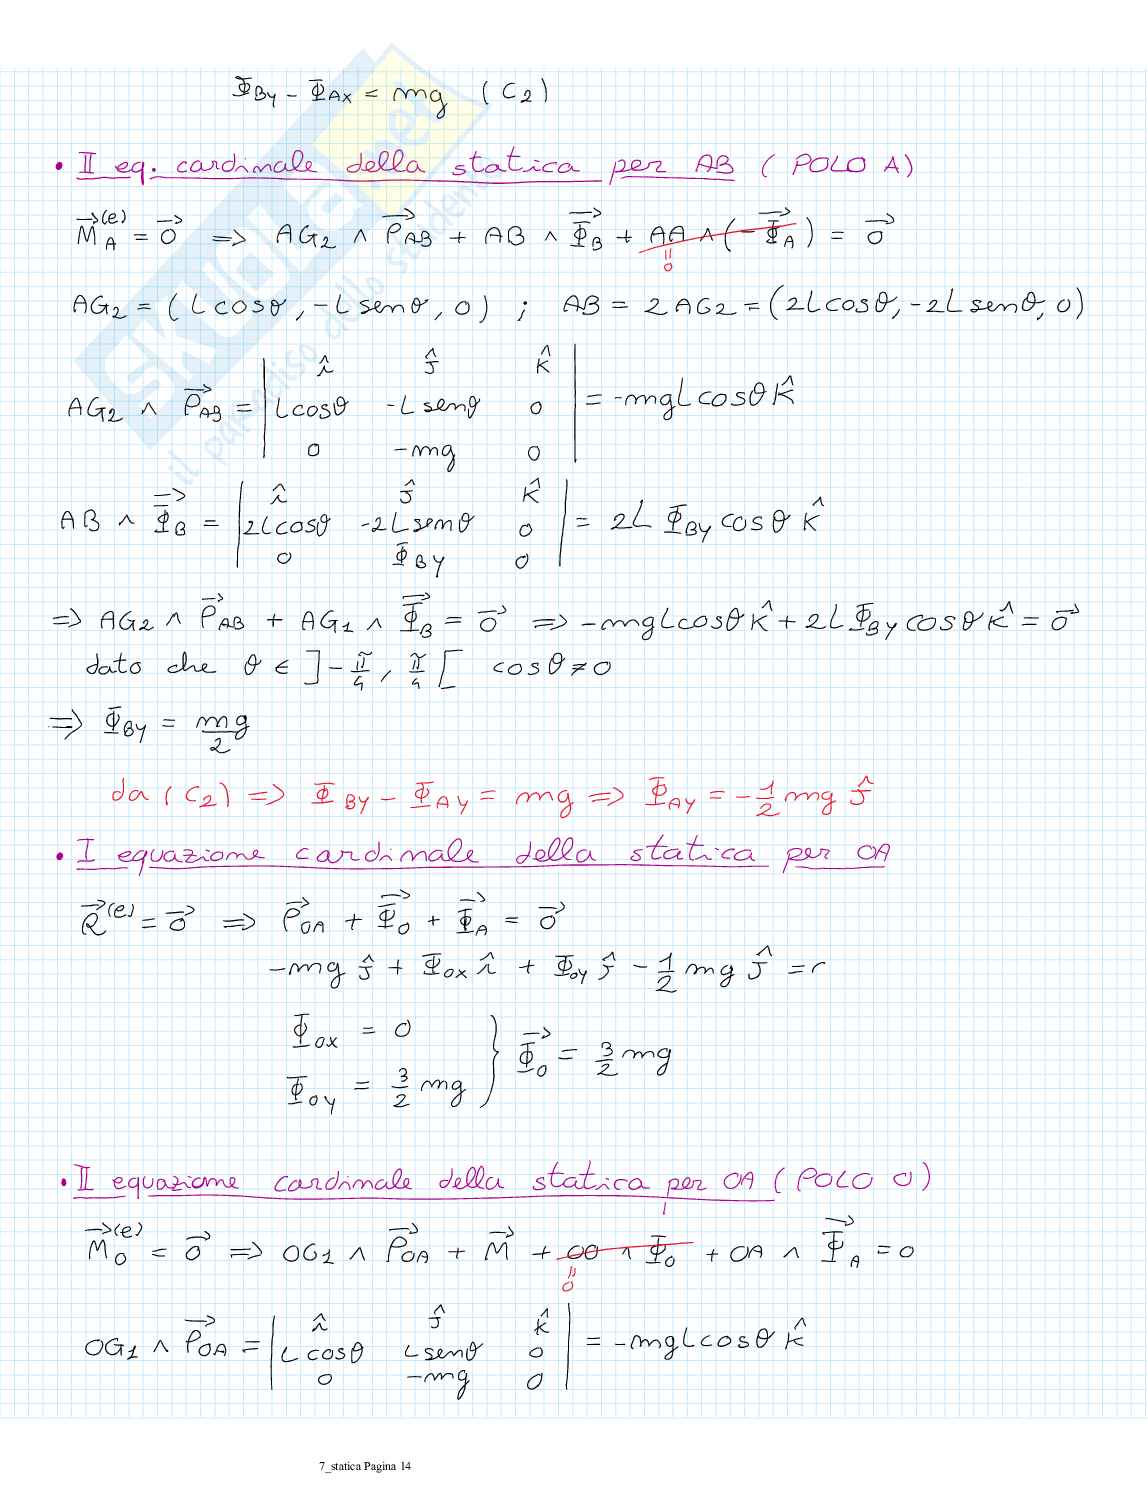 Φ_By - Φ_Ax = mg (C2)
• II eq. cardinale della statica per AB ( POLO A)
M⃗_A^(e) = 0⃗ => AG2 ∧ P⃗_AB + AB ∧ Φ⃗_B + AA ∧ (-Φ⃗_A) = 0⃗
"
0
AG2 = (L cosθ, -L senθ, 0) ; AB = 2AG2 = (2L cosθ, -2L senθ, 0)
î ĵ k̂
AG2 ∧ P⃗_AB = | L cosθ -L senθ 0 | = -mgL cosθ k̂
0 -mg 0
î ĵ k̂
AB ∧ Φ⃗_B = | 2L cosθ -2L senθ 0 | = 2L Φ_By cosθ k̂
0 Φ_By 0
=> AG2 ∧ P⃗_AB + AG1 ∧ Φ⃗_B = 0⃗ => -mgL cosθ k̂ + 2L Φ_By cosθ k̂ = 0⃗
dato che θ ∈ ]-π/4, π/4[ cosθ ≠ 0
=> Φ_By = mg/2
da (C2) => Φ_By - Φ_Ay = mg => Φ_Ay = -1/2 mg ĵ
• I equazione cardinale della statica per OA
R⃗^(e) = 0⃗ => P⃗_OA + Φ⃗_O + Φ⃗_A = 0⃗
-mg ĵ + Φ_Ox î + Φ_Oy ĵ - 1/2 mg ĵ =
Φ_Ox = 0
Φ_Oy = 3/2 mg } Φ⃗_O = 3/2 mg
• II equazione cardinale della statica per OA ( POLO O)
M⃗_O^(e) = 0⃗ => OG1 ∧ P⃗_OA + M⃗ + OO ∧ Φ⃗_O + OA ∧ Φ⃗_A = 0
"
0
î ĵ k̂
OG1 ∧ P⃗_OA = | L cosθ L senθ 0 | = -mgL cosθ k̂
0 -mg 0
7_statica Pagina 14
SKUOLA.net
il paradiso dello studente